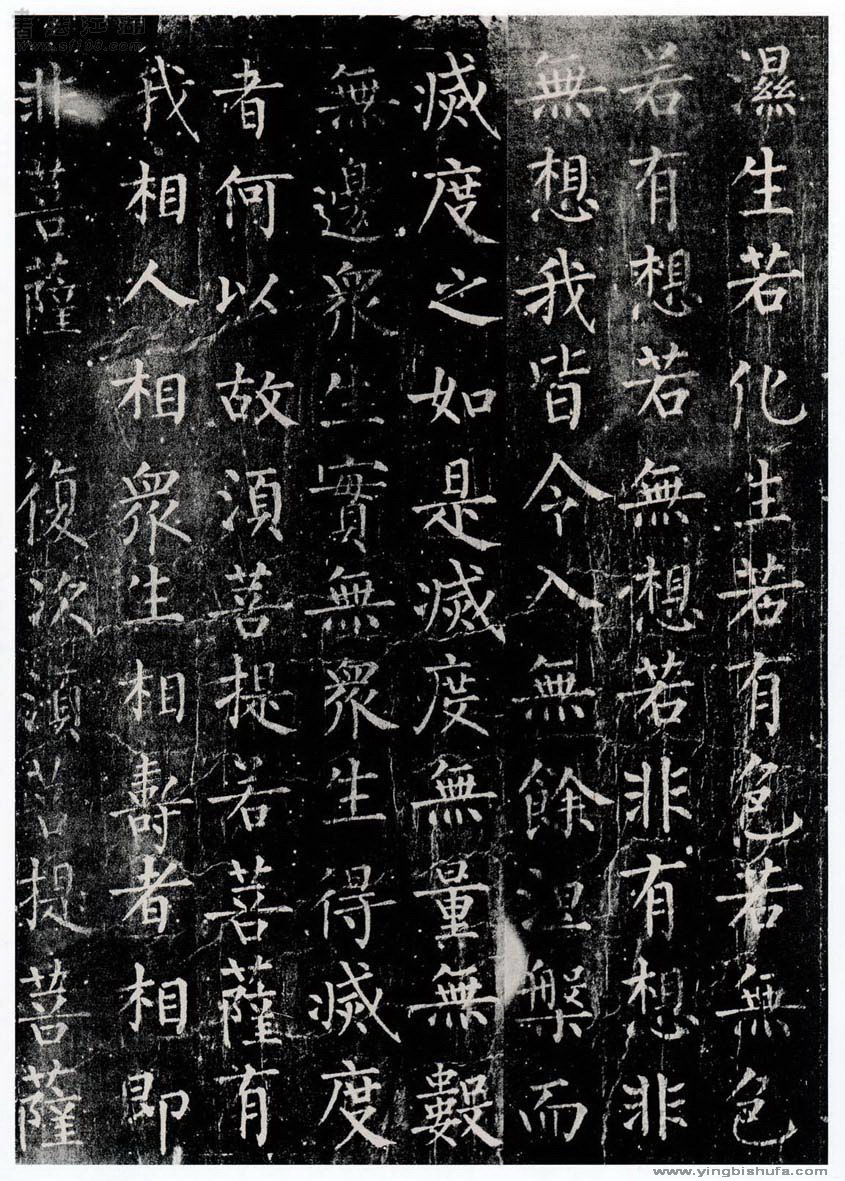 濕生若化生若有色若無色
若有想若無想若非有想非
無想我皆令入無餘涅槃而
滅度之如是滅度無量無數
無邊眾生實無眾生得滅度
者何以故須菩提若菩薩有
我相人相眾生相壽者相即
非菩薩　復次須菩提菩薩
www.yingbishufa.com